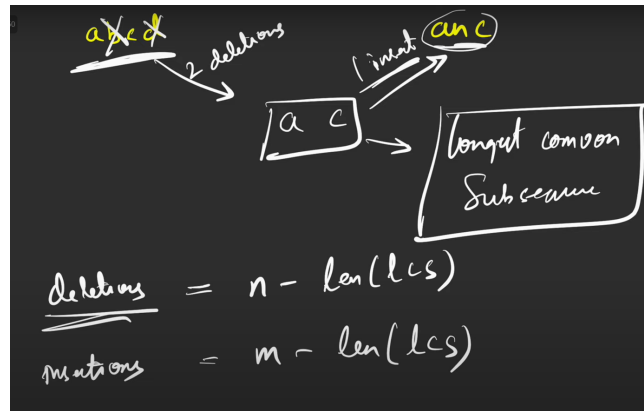 abcd
2 deletions
1 insert
anc
a c
longest common
Subsequence
deletions = n - len(lcs)
insertions = m - len(lcs)